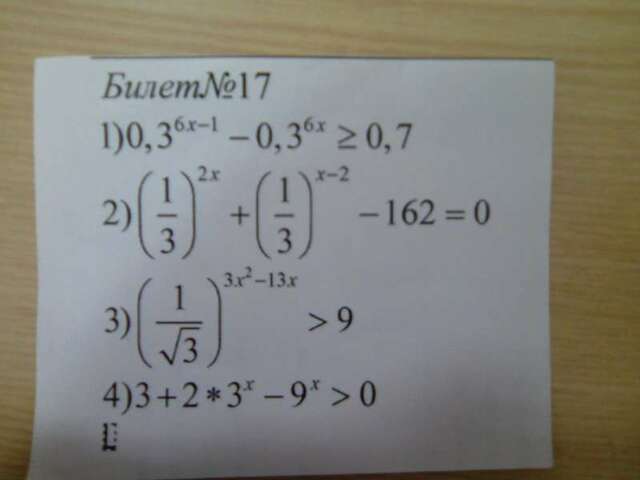 Билет№17
1)0,3^{6x-1} - 0,3^{6x} ≥ 0,7
2)(1/3)^{2x} + (1/3)^{x-2} - 162 = 0
3)(1/√3)^{3x²-13x} > 9
4)3+2*3^x - 9^x > 0